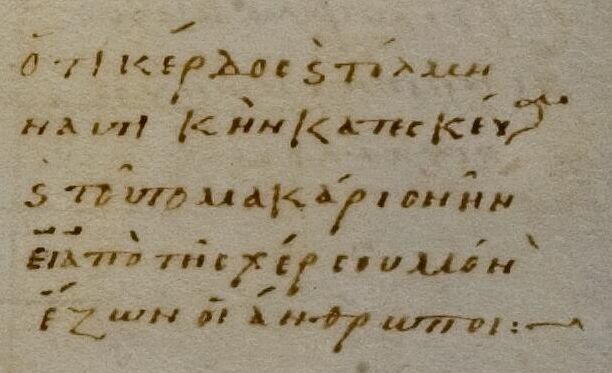 ὅτι κέρδος ϗ τόλμη
ναυτικὴν κατεσκεύ
ϗ τοῦτο μακάριον ἦν
εἰ ἀπὸ τῆς χέρσου μόνον
ἔζων οἱ ἄνθρωποι: